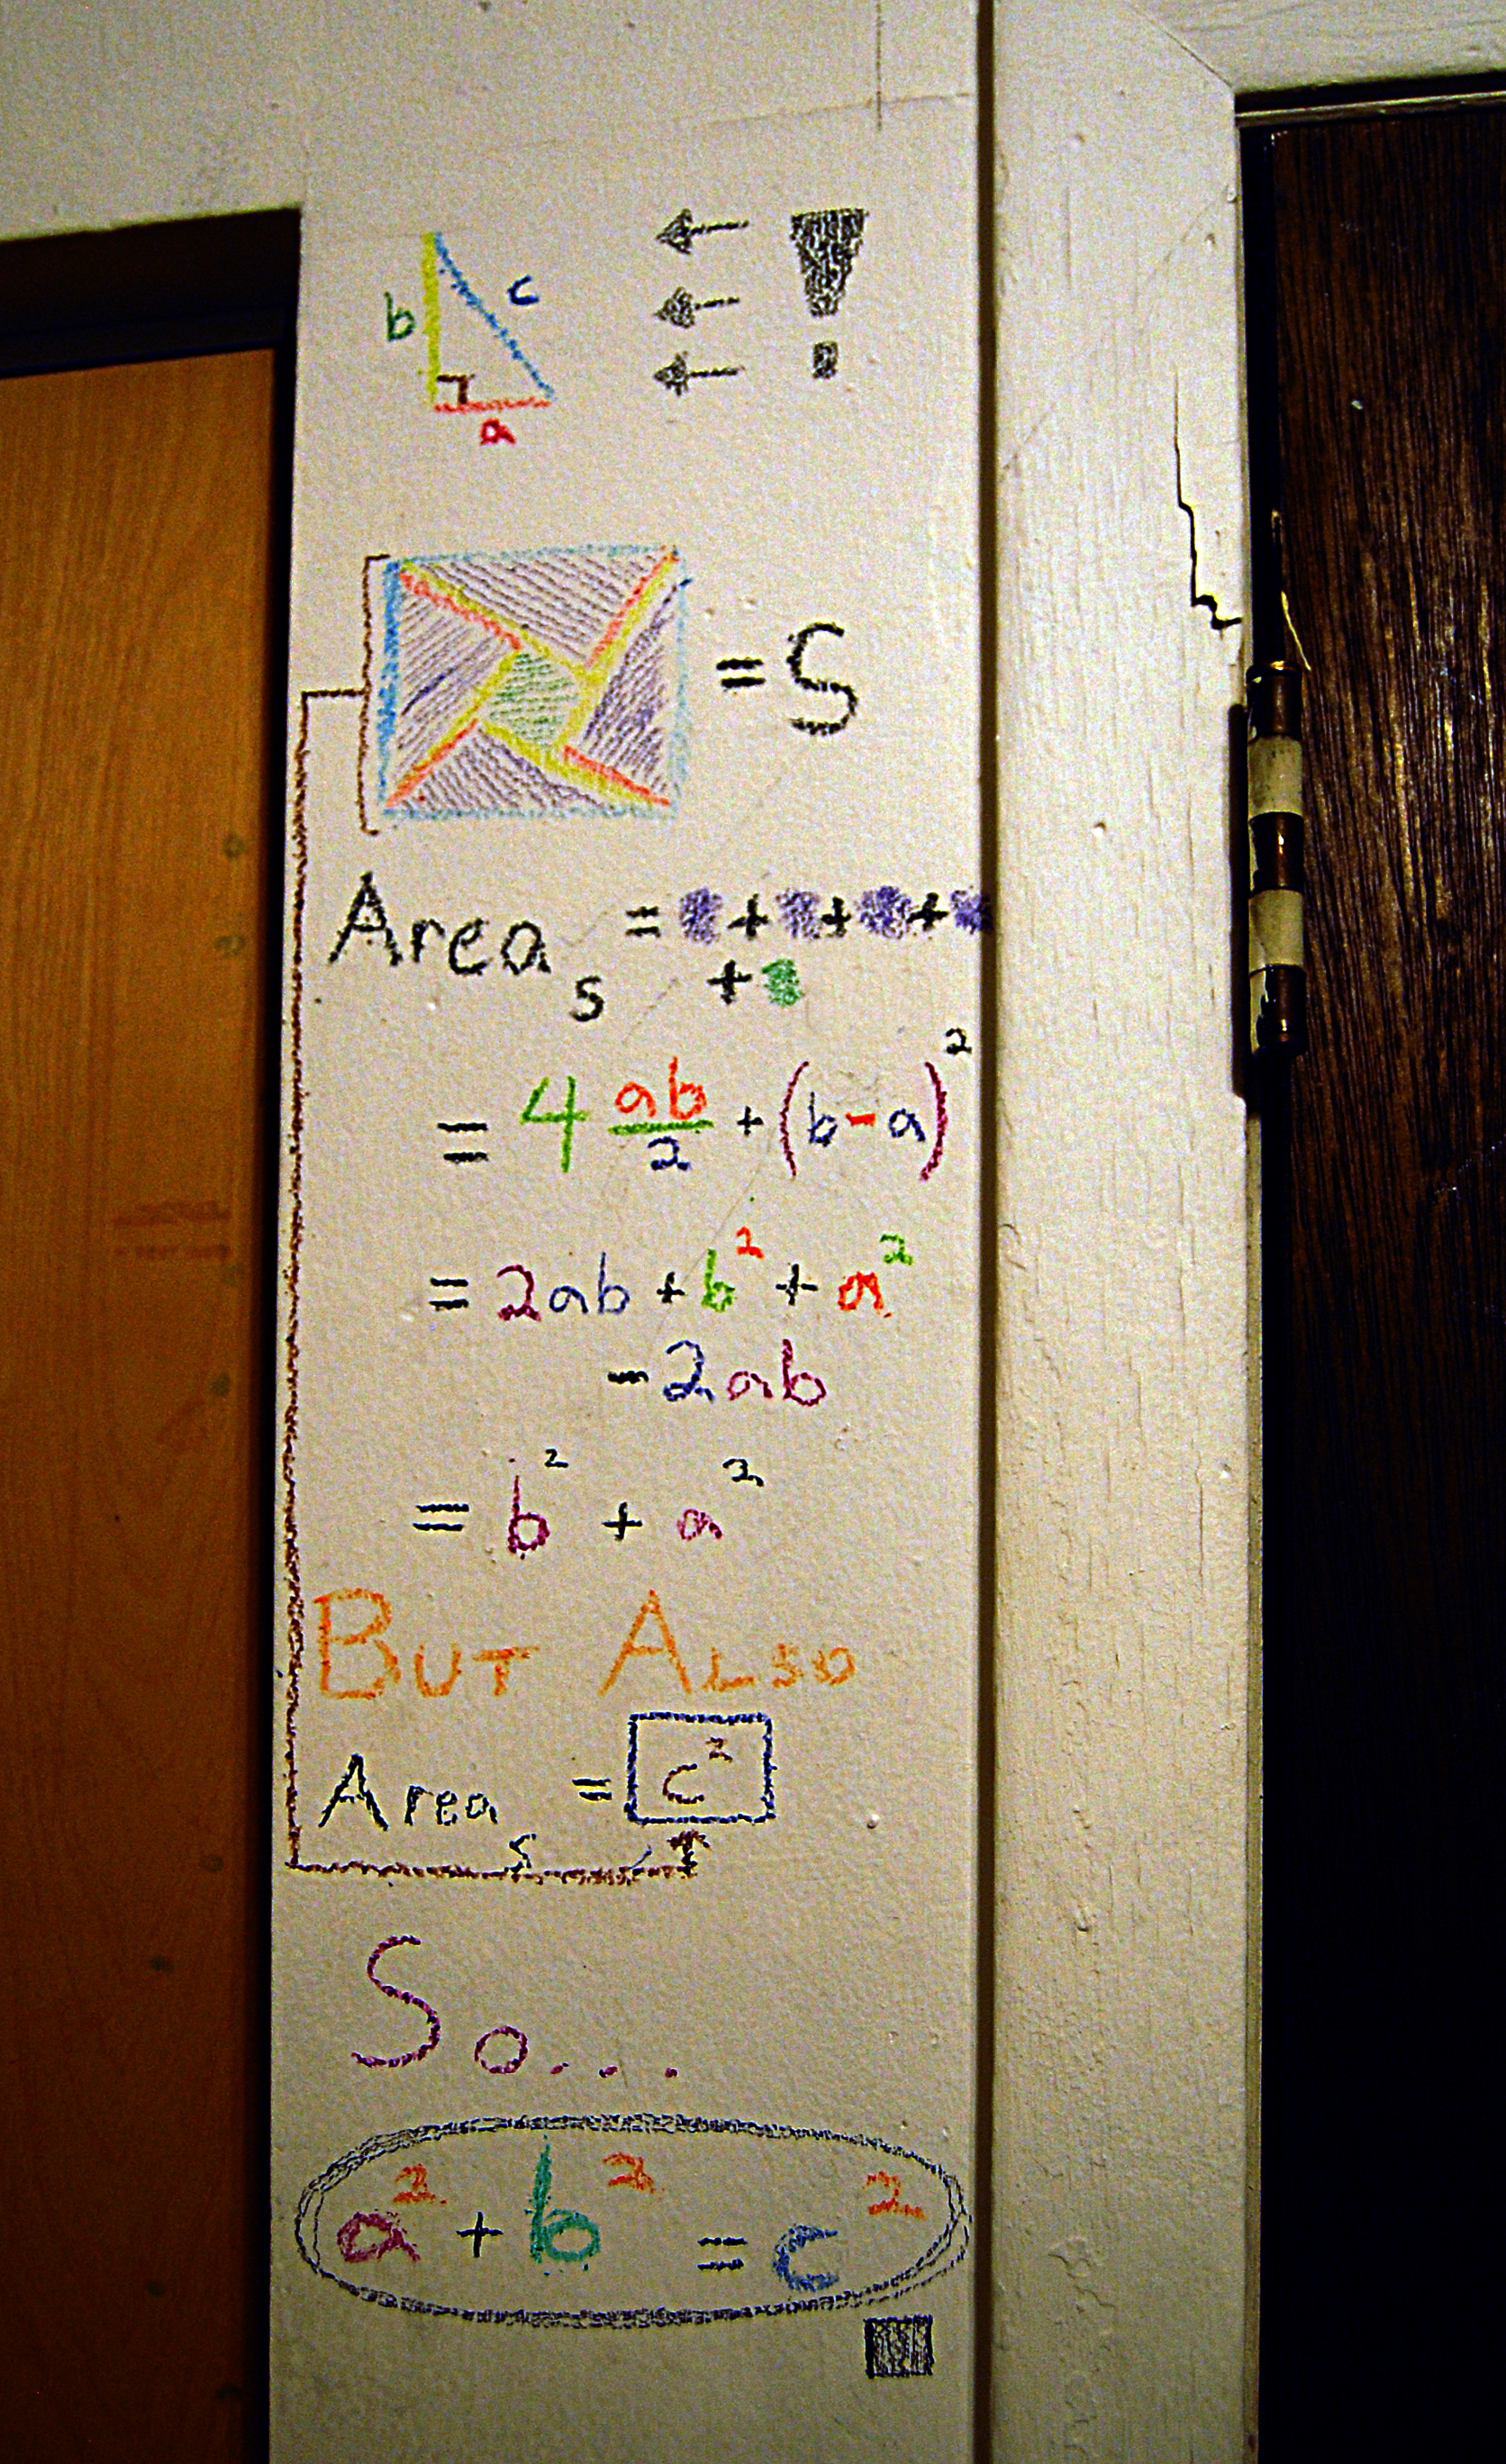 b c
a
!
= S
Area s = + + +
+
= 4 ab/2 + (b - a)²
= 2ab + b² + a²
- 2ab
= b² + a²
BUT ALSO
Area s = c²
So...
a² + b² = c²